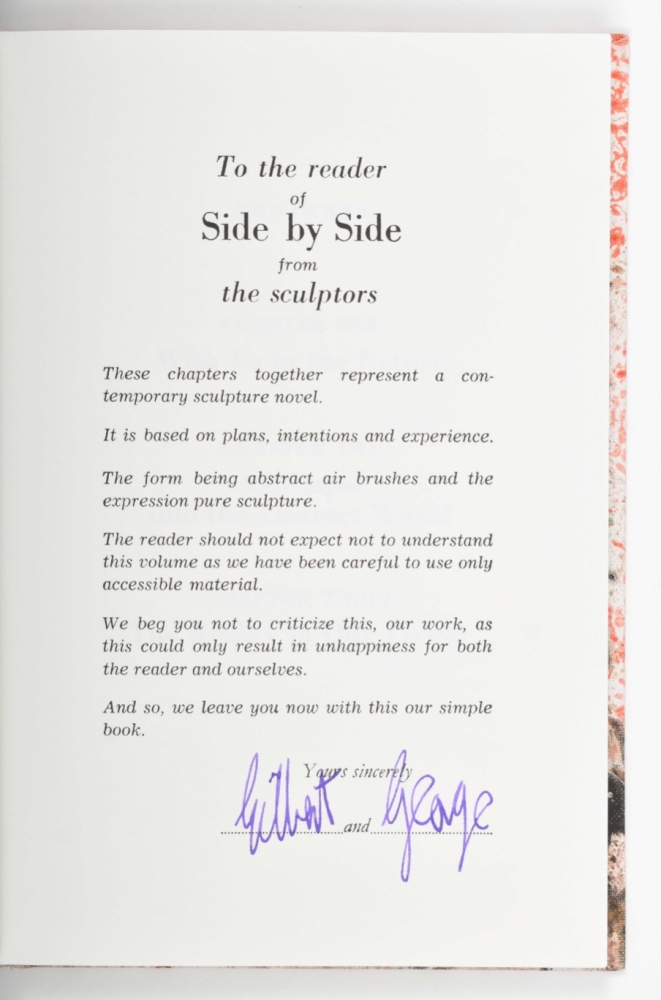 To the reader
of
Side by Side
from
the sculptors
These chapters together represent a con-
temporary sculpture novel.
It is based on plans, intentions and experience.
The form being abstract air brushes and the
expression pure sculpture.
The reader should not expect not to understand
this volume as we have been careful to use only
accessible material.
We beg you not to criticize this, our work, as
this could only result in unhappiness for both
the reader and ourselves.
And so, we leave you now with this our simple
book.
Yours sincerely
Gilbert and George